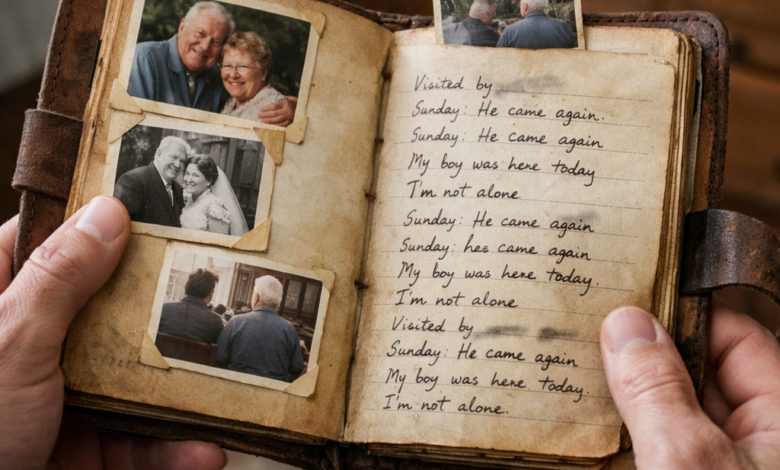 Visited by
Sunday: He came again.
Sunday: He came again
My boy was here today
I'm not alone
Sunday: He came again
Sunday: hes came again
My boy was here today.
I'm not alone
Visited by
Sunday: He came again
My boy was here today.
I'm not alone.